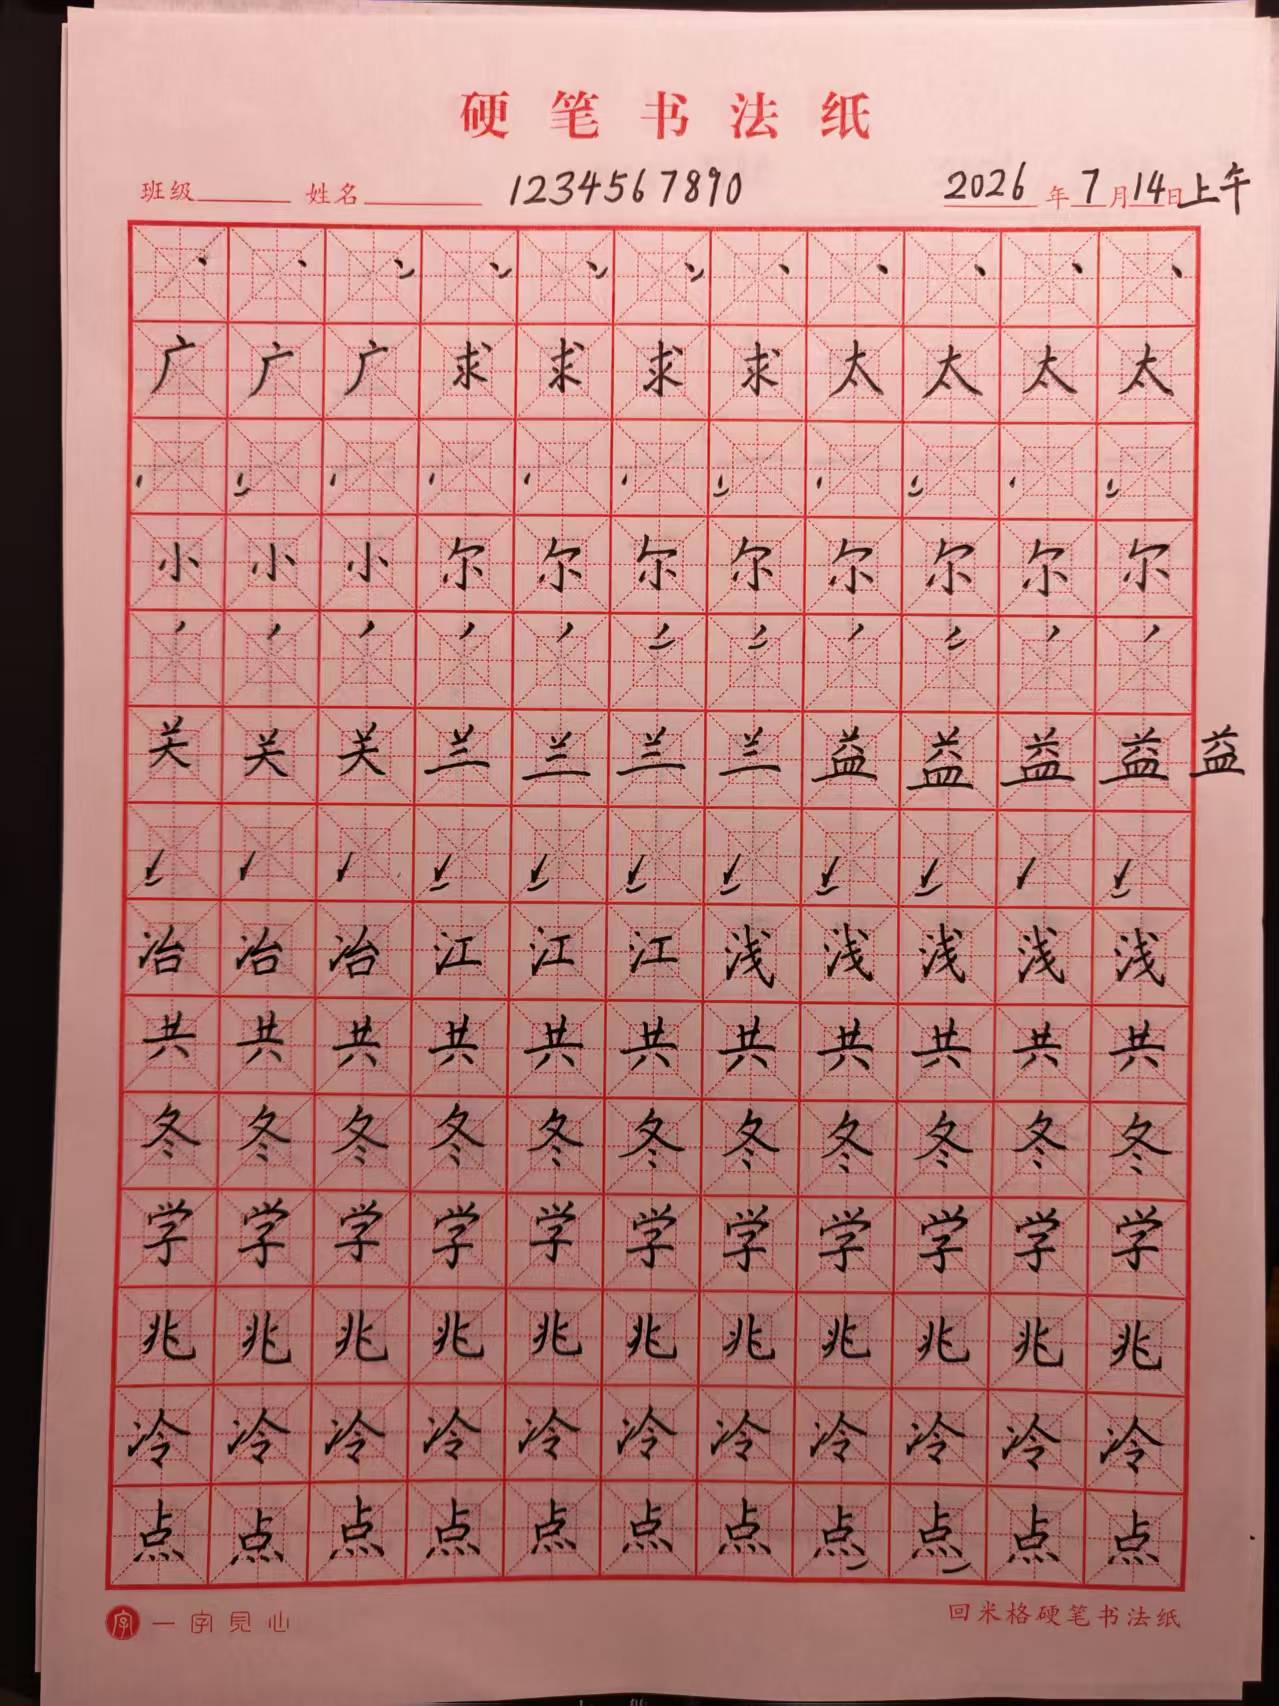 硬笔书法纸
班级 姓名 1234567890 2026年7月14日上午
丶丶丶丶丶丶丶丶丶丶丶
广广广求求求求太太太太
小小小尔尔尔尔尔尔尔尔
关关关兰兰兰兰益益益益益
冶冶冶江江江浅浅浅浅浅
共共共共共共共共共共共
冬冬冬冬冬冬冬冬冬冬冬
学学学学学学学学学学学
兆兆兆兆兆兆兆兆兆兆兆
冷冷冷冷冷冷冷冷冷冷冷
点点点点点点点点点点点
字 一字見心 回米格硬笔书法纸